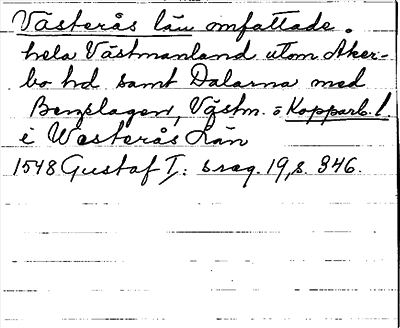 Västerås län omfattade
hela Västmanland utom Åker-
bo hd samt Dalarna med
Bergslagen, Västm. o Kopparb. l.
i Westerås Län
1548 Gustaf I: s reg. 19, s. 346.